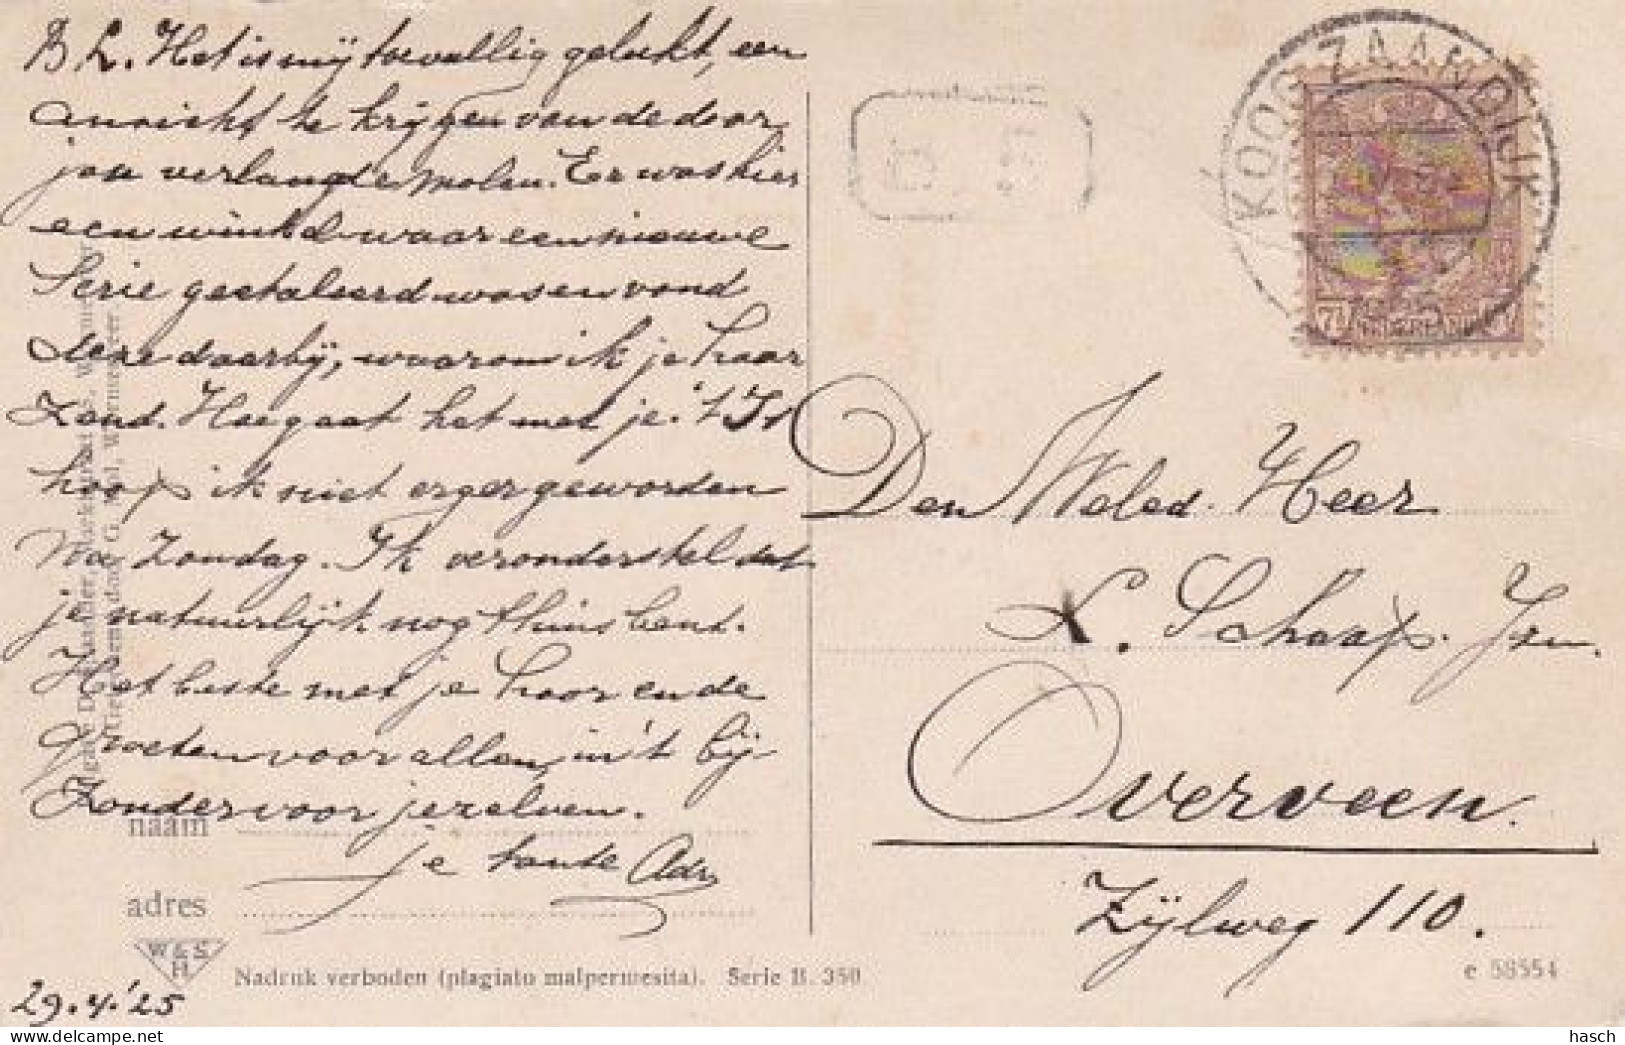 B L. Het is mij toevallig gelukt, een
ansicht te krijgen van de door
jou verlangde molen. Er was hier
een winkel waar een nieuwe
Serie geetaleerd was en vond
deze daarbij, waarom ik je haar
zond. Hoe gaat het met je. 't Is
hoop ik niet erger geworden
na Zondag. Ik veronderstel dat
je natuurlijk nog thuis bent.
Het beste met je hoor en de
groeten voor allen, in 't bij-
zonder voor jezelven.
je tante Adr.
naam
adres
W & S
H
29.4.'25
Nadruk verboden (plagiato malpermesita). Serie B. 350
KOOG-ZAANDIJK
7½ NEDERLAND 7½
Den Weled. Heer
L. Schaap. Jzn.
Overveen.
Zijlweg 110.
e 58554
hasch